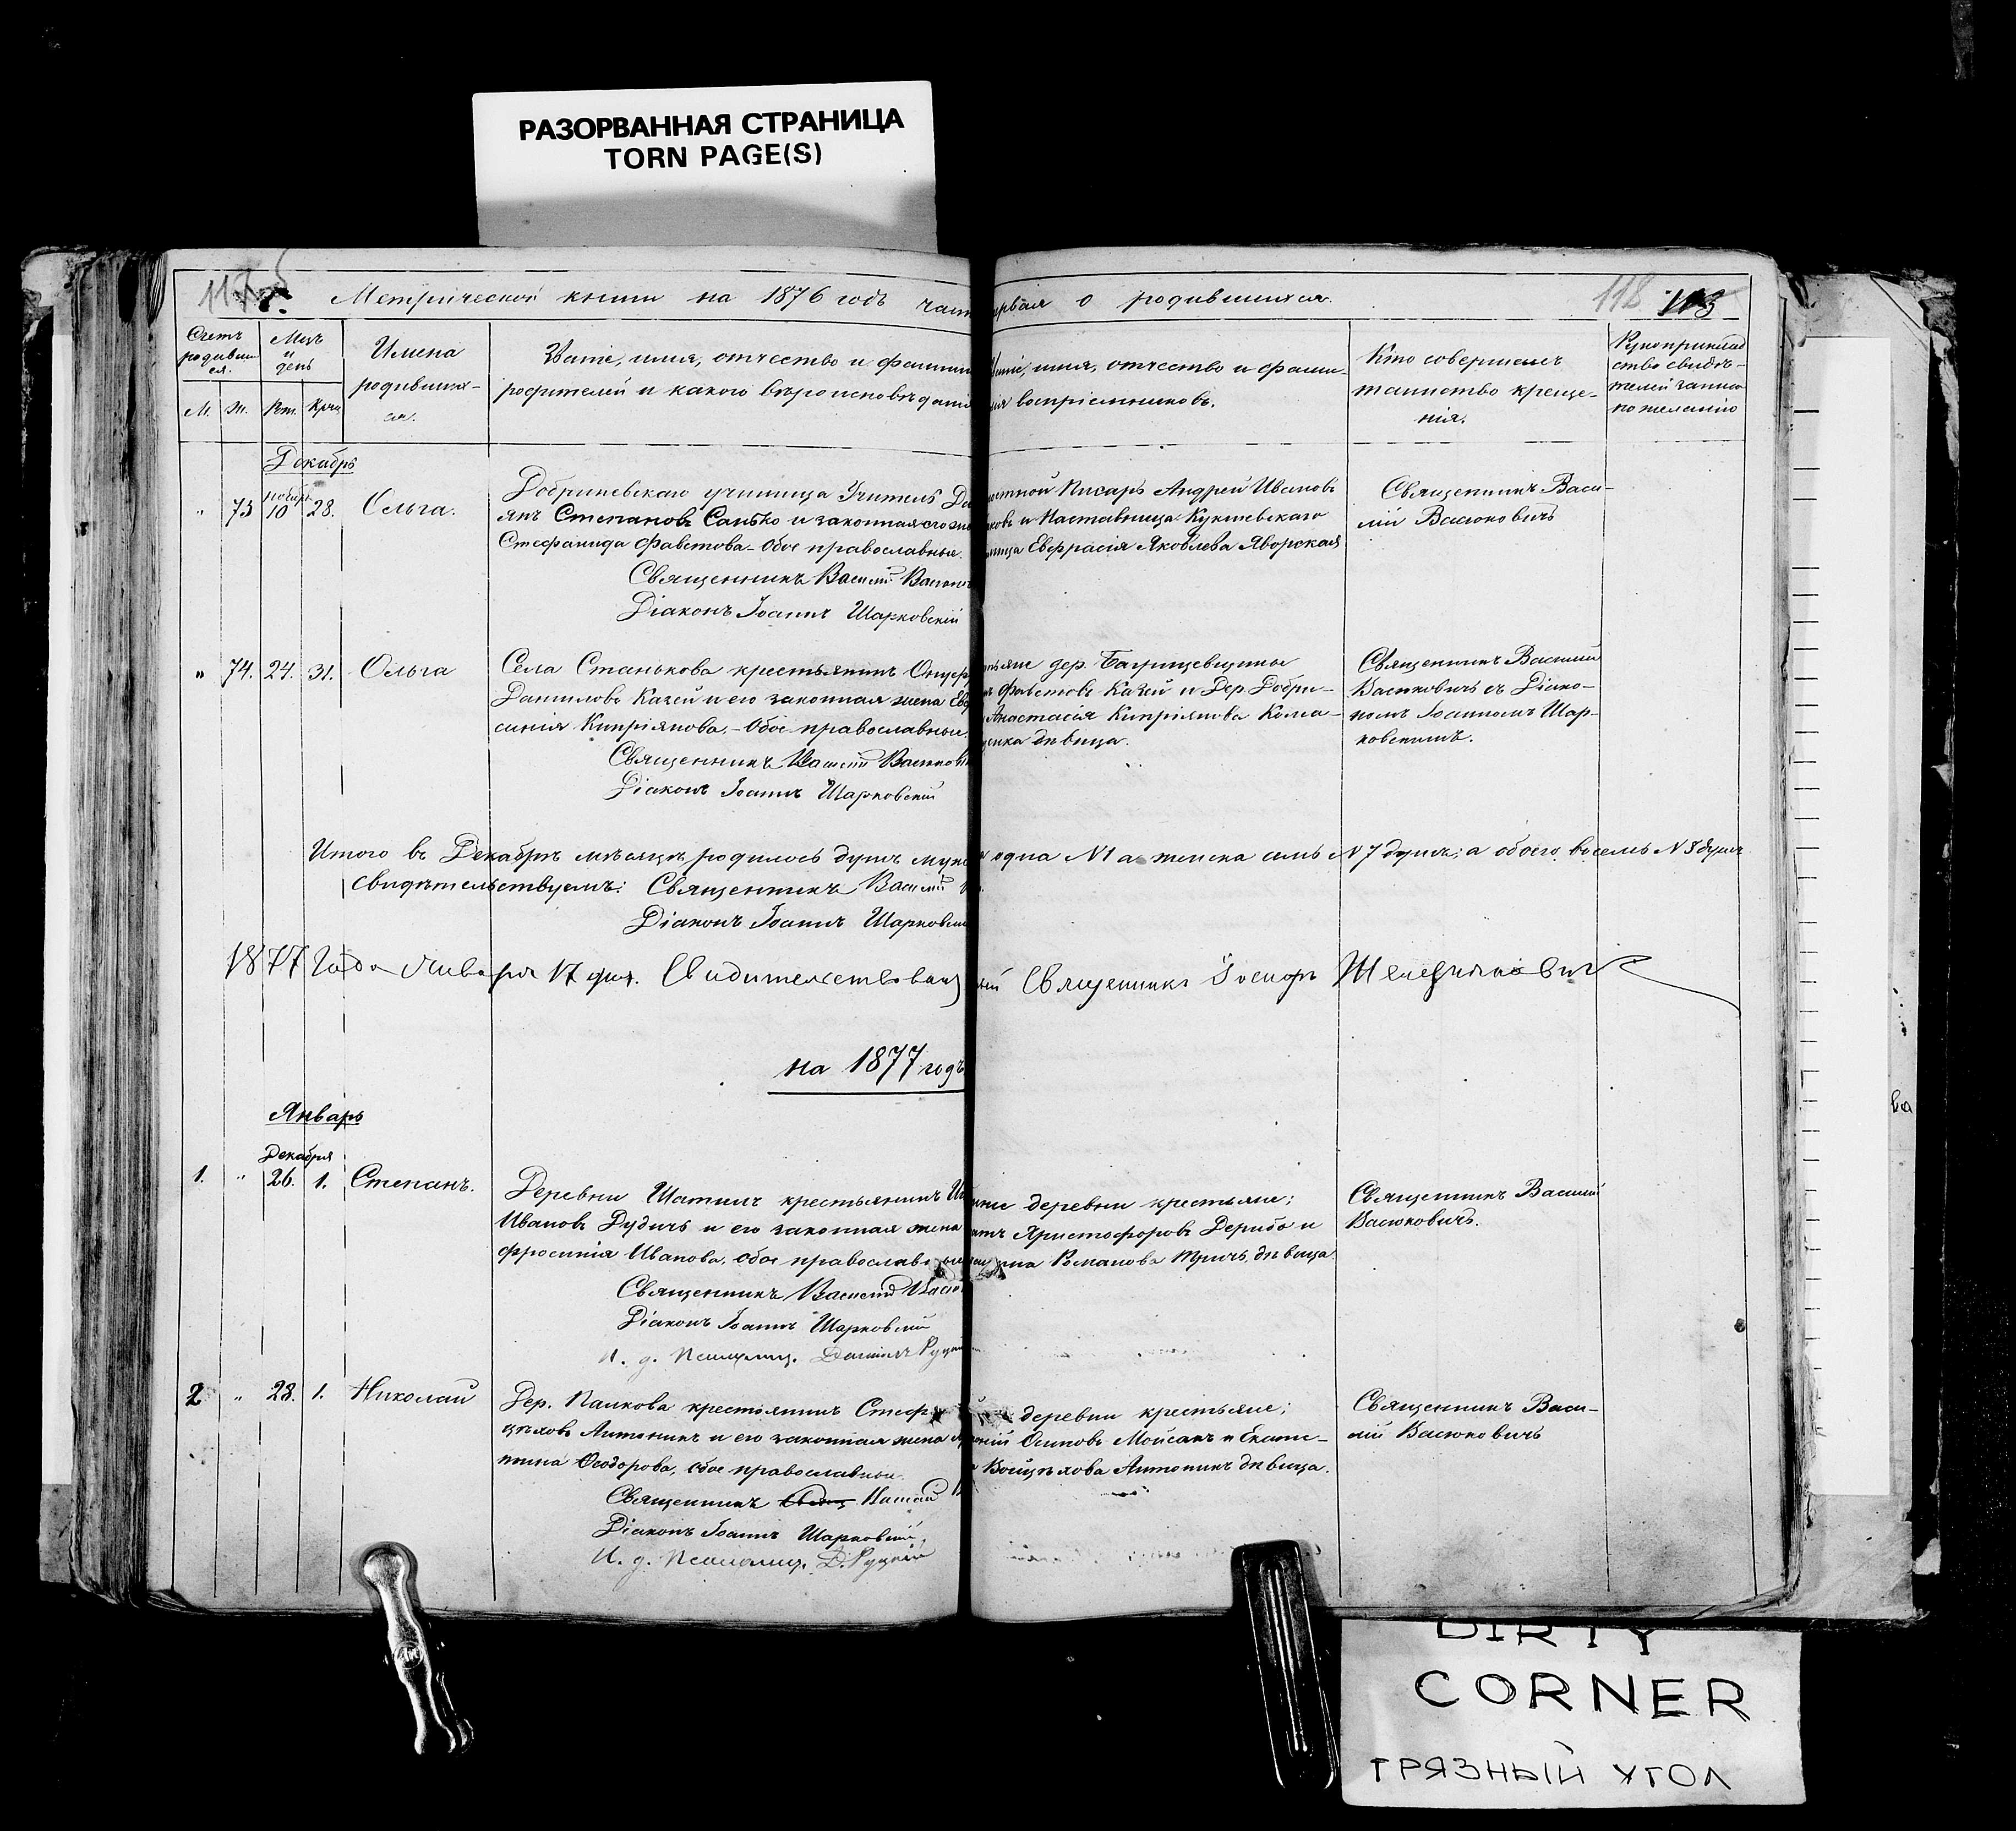 РАЗОРВАННАЯ СТРАНИЦА
TORN PAGE(S)
Метрической книги на 1876 годъ част
ервая о родившихся.
118
Счетъ
родивши
ся.
М.
Ж.
Мцъ
и
день
Рож.
Крещ
Имена
родивших-
ся.
Званіе, имя, отчество и фамиліи
родителей и какого вѣроисповѣданія
Званіе, имя, отчество и фами-
лія воспріемниковъ.
Кто совершалъ
таинство креще-
нія.
Рукоприклад
ство свидѣ-
телей записи
по желанію
Декабрь
" 73 ноября 10 28. Ольга.
Добриневскаго училища Учитель
янъ Степановъ Санько и законная его же
Стефанида Фавстова - Обое православные.
Священникъ Василій Васюков
Діаконъ Іоаннъ Шарковскій
лостной Писарь Андрей Ивановъ
ковъ и Наставница Кукшевскаго
лища Евфрасія Яковлева Яворская
Священникъ Васи-
лій Васюковичъ
" 74. 24. 31. Ольга
Села Станькова крестьянинъ Онуфр
Даниловъ Казей и его законная жена Евф
синія Кипріянова, - Обое православные.
Священникъ Василій Васюкови
Діаконъ Іоаннъ Шарковскій
тьяне дер. Багрицевщины
Фавстовъ Казей и Дер. Добри-
Анастасія Кипріянова Кома-
ренка дѣвица.
Священникъ Василій
Васюковичъ съ Діако-
номъ Іоанномъ Шар-
ковскимъ.
Итого въ Декабрѣ мѣсяцѣ родилось душъ муже
а одна N 1 а женска семь N 7 душъ; а обоего восемь N 8 душъ
Свидѣтельствуемъ: Священникъ Василій
Діаконъ Іоаннъ Шарковски
1877 Года Января 17 дня. Свидительствовал
Священникъ Іосифъ
на 1877 годъ
Январь
Декабря
1. " 26. 1. Степанъ.
Деревни Шатилъ крестьянинъ
Ивановъ Дудичъ и его законная жена
фросинія Иванова, обое православные
Священникъ Василій Васюк
Діаконъ Іоаннъ Шарковскій
И. д. Псаломщ. Даніилъ Руцкі
деревни крестьяне;
Христофоровъ Дерибо и
Романова Тричъ, дѣвица
Священникъ Василій
Васюковичъ.
2 " 28. 1. Николай
Дер. Палкова крестьянинъ Стеф
цѣховъ Антоникъ и его законная жена
тина Ѳеодорова, обое православные.
Священникъ Василій
Діаконъ Іоаннъ Шарковскій
И. д. Псаломщ. Д. Руцкій
деревни крестьяне;
Осиповъ Мойсакъ и Екате-
Войцѣхова Антоникъ дѣвица.
Священникъ Васи-
лій Васюковичъ
ва
DIRTY
CORNER
ГРЯЗНЫЙ УГОЛ